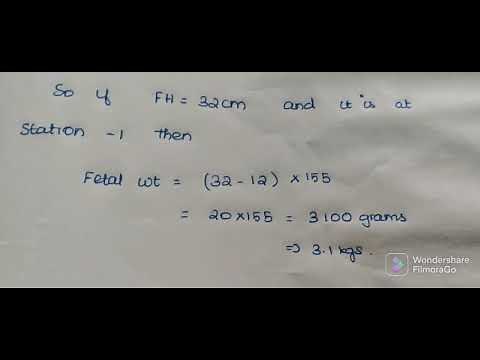 So if FH = 32cm and it is at
Station -1 then
Fetal wt = (32-12) × 155
= 20×155 = 3100 grams
⇒ 3.1 kgs.
Wondershare
FilmoraGo